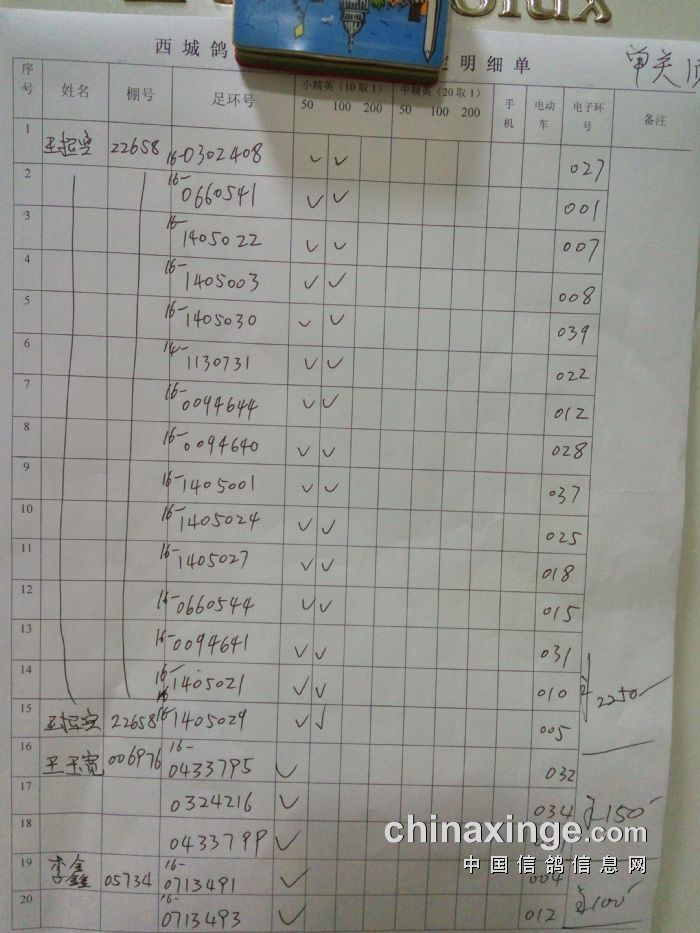 西城鸽 明细单 单关
序号 姓名 棚号 足环号 小精英（10取1） 50 100 200 中精英（20取1） 50 100 200 手机 电动车 电子环号 备注
1 22658 16-0302408 ✓ ✓ 027
2 16-0660541 ✓ ✓ 001
3 16-1405022 ✓ ✓ 007
4 16-1405003 ✓ ✓ 008
5 16-1405030 ✓ ✓ 039
6 1130731 ✓ ✓ 022
7 16-0094644 ✓ ✓ 012
8 16-0094640 ✓ ✓ 028
9 16-1405001 ✓ ✓ 037
10 16-1405024 ✓ ✓ 025
11 16-1405027 ✓ ✓ 018
12 16-0660544 ✓ ✓ 015
13 16-0094641 ✓ ✓ 031
14 16-1405021 ✓ ✓ 010 2250
15 22658 16-1405029 ✓ ✓ 005
16 王玉宽 006976 16-0433795 ✓ 032
17 0324216 ✓ 034 150
18 0433799 ✓
chinaxinge.com
中国信鸽信息网
19 李鑫 05734 16-0713491 ✓ 004
20 16-0713493 ✓ 012 100